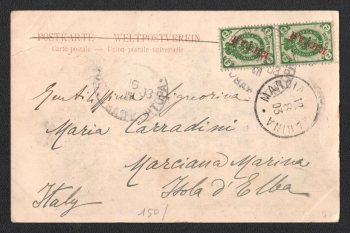 POSTKARTE — WELTPOSTVEREIN
Carte postale — Union postale universelle
Gentilissima Signorina
Maria Carradini
Marciana Marina
Isola d'Elba
Italy
150/